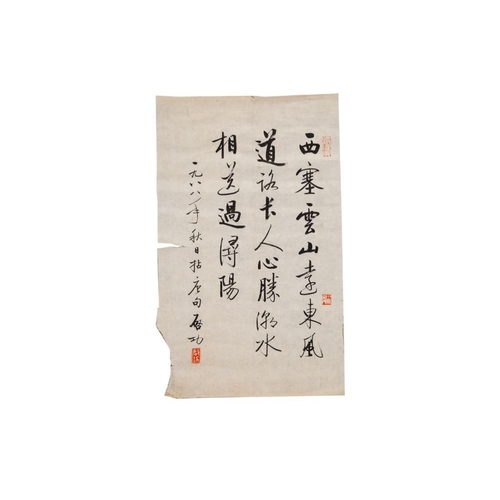 西塞雲山遠東風
道路長人心勝潮水
相送過潯陽
一九八八年秋日拈唐句啟功